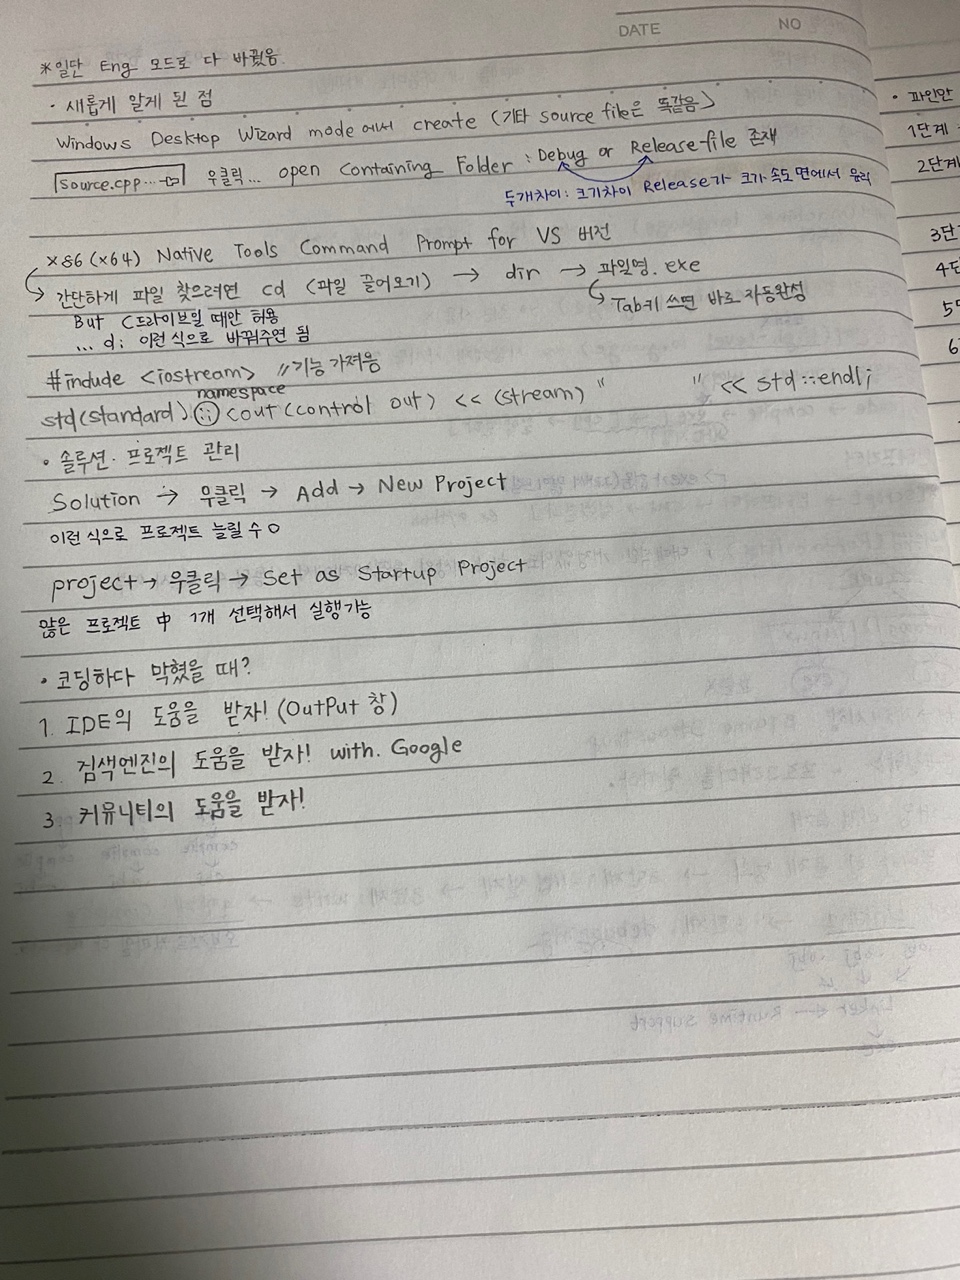 DATE NO
*일단 Eng 모드로 다 바꿨음.
· 새롭게 알게 된 점
Windows Desktop Wizard mode에서 create (기타 source file은 똑같음)
source.cpp... 우클릭... open Containing Folder : Debug or Release file 존재
두개차이: 크기차이 Release가 크기·속도면에서 유리
x86(x64) Native Tools Command Prompt for VS 버전
↳ 간단하게 파일 찾으려면 cd (파일 끌어오기) → dir → 파일명.exe
But C드라이브일 때만 허용
↳ Tab키 쓰면 바로 자동완성
... d: 이런 식으로 바꿔주면 됨
#include <iostream> //기능 가져옴
namespace
std(standard) :: cout (control out) << (stream) " " << std::endl;
· 솔루션·프로젝트 관리
Solution → 우클릭 → Add → New Project
이런 식으로 프로젝트 늘릴 수 O
project → 우클릭 → Set as Startup Project
많은 프로젝트 中 1개 선택해서 실행가능
· 코딩하다 막혔을 때?
1. IDE의 도움을 받자! (OutPut 창)
2. 검색엔진의 도움을 받자! with. Google
3. 커뮤니티의 도움을 받자!
· 파인만
1단계
2단계
3단
4단
5단
6